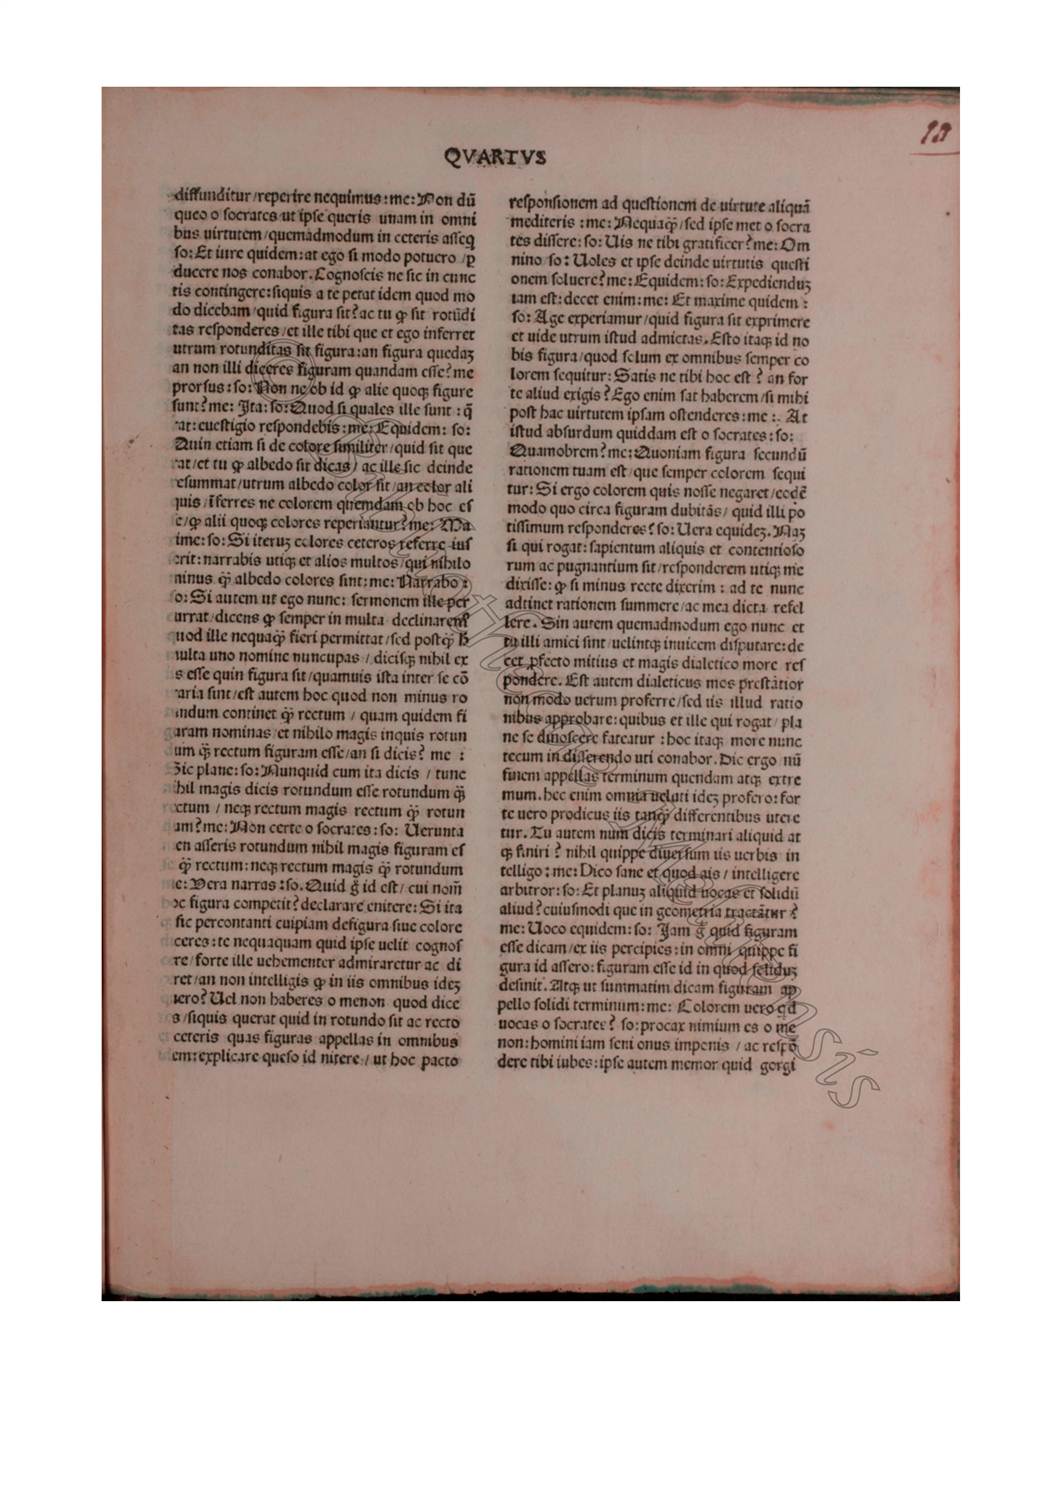 QVARTVS
diffunditur/reperire nequimus:me:Non dū
queo o socrates ut ipse queris unam in omni
bus uirtutem/quemadmodum in ceteris asseq
so:Et iure quidem:at ego si modo potuero /ꝑ
ducere nos conabor.Cognoscis ne sic in cunc
tis contingere:siquis a te petat idem quod mo
do dicebam/quid figura sit?ac tu ꝙ sit rotūdi
tas responderes/et ille tibi que et ego inferret
utrum rotunditas sit figura:an figura quedaꝫ
an non illi diceres figuram quandam esse?me
prorsus:so:Non ne ob id ꝙ alie quoqꝫ figure
sunt?me: Ita:so:Quod si quales ille sunt :q̄
rat:euestigio respondebis:me:Equidem: so:
Quin etiam si de colore similiter/quid sit que
rat/et tu ꝙ albedo sit dicas/ ac ille sic deinde
resummat/utrum albedo color sit/an color ali
quis/īferres ne colorem quemdam ob hoc es
se/ꝙ alii quoqꝫ colores reperiantur?me: Ma
ime:so:Si iteruꝫ colores ceteros referre ius
erit:narrabis utiqꝫ et alios multos/qui nihilo
minus q̄ꝫ albedo colores sint:me:Narrabo:
so:Si autem ut ego nunc: sermonem ille per
currat/dicens ꝙ semper in multa declinaremꝰ
quod ille nequaq̄ꝫ fieri permittat/sed postq̄ꝫ h̄
multa uno nomine nuncupas/ dicisqꝫ nihil ex
is esse quin figura sit/quamuis ista inter se cō
traria sint/est autem hoc quod non minus ro
tundum continet q̄ꝫ rectum / quam quidem fi
guram nominas/et nihilo magis inquis rotun
dum q̄ꝫ rectum figuram esse/an si dicis? me :
Sic plane:so:Nunquid cum ita dicis / tunc
nihil magis dicis rotundum esse rotundum q̄ꝫ
rectum / neqꝫ rectum magis rectum q̄ꝫ rotun
dum?me:Non certe o socrates:so: Uerunta
men asseris rotundum nihil magis figuram es
se q̄ꝫ rectum:neqꝫ rectum magis q̄ꝫ rotundum
me:Vera narras:so.Quid g̊ id est/ cui nom̄
hoc figura competit?declarare enitere:Si ita
sic percontanti cuipiam defigura siue colore
diceres:te nequaquam quid ipse uelit cognos
cere/forte ille uehementer admiraretur ac di
ceret/an non intelligis ꝙ in iis omnibus ideꝫ
quero?Uel non haberes o menon quod dice
res/siquis querat quid in rotundo sit ac recto
et ceteris quas figuras appellas in omnibus
idem:explicare queso id nitere/ut hoc pacto
responsionem ad questionem de uirtute aliquā
mediteris :me:Nequaq̄ꝫ/sed ipse met o socra
tes dissere:so:Uis ne tibi gratificer?me:Om
nino so:Uoles et ipse deinde uirtutis questi
onem soluere?me:Equidem:so:Expedienduꝫ
iam est:decet enim:me: Et maxime quidem :
so:Age experiamur/quid figura sit exprimere
et uide utrum istud admictas.Esto itaqꝫ id no
bis figura/quod solum ex omnibus semper co
lorem sequitur:Satis ne tibi hoc est ? an for
te aliud exigis?Ego enim sat haberem/si mihi
post hac uirtutem ipsam ostenderes:me :. At
istud absurdum quiddam est o socrates:so:
Quamobrem?me:Quoniam figura secundū
rationem tuam est/que semper colorem sequi
tur:Si ergo colorem quis nosse negaret/eodē
modo quo circa figuram dubitās/ quid illi po
tissimum responderes?so:Uera equideꝫ.Naꝫ
si qui rogat:sapientum aliquis et contentioso
rum ac pugnantium sit/responderem utiqꝫ me
dixisse:ꝙ si minus recte dixerim : ad te nunc
adtinet rationem summere/ac mea dicta refel
lere.Sin autem quemadmodum ego nunc et
tu illi amici sint/uelintqꝫ inuicem disputare:de
cet ꝓfecto mitius et magis dialetico more res
pondere.Est autem dialeticus mos prestātior
non modo uerum proferre/sed iis illud ratio
nibus approbare:quibus et ille qui rogat/ pla
ne se dinoscere fateatur :hoc itaqꝫ more nunc
tecum in disserendo uti conabor.Dic ergo nū
finem appellas terminum quendam atqꝫ extre
mum.hec enim omnia ueluti ideꝫ profero:for
te uero prodicus iis tanq̄ꝫ differentibus utere
tur.Tu autem num dicis terminari aliquid at
qꝫ finiri ? nihil quippe diuersum iis uerbis in
telligo:me:Dico sane et quod ais/ intelligere
arbitror:so:Et planuꝫ aliquid uocas et solidū
aliud?cuiusmodi que in geometria tractātur ?
me:Uoco equidem:so: Iam g̊ quid figuram
esse dicam/ex iis percipies:in omni quippe fi
gura id assero:figuram esse id in quod soliduꝫ
desinit.Atqꝫ ut summatim dicam figuram ap
pello solidi terminum:me: Colorem uero qd̄
uocas o socrates? so:procax nimium es o me
non:homini iam seni onus imponis / ac respō
dere tibi iubes:ipse autem memor quid gorgi